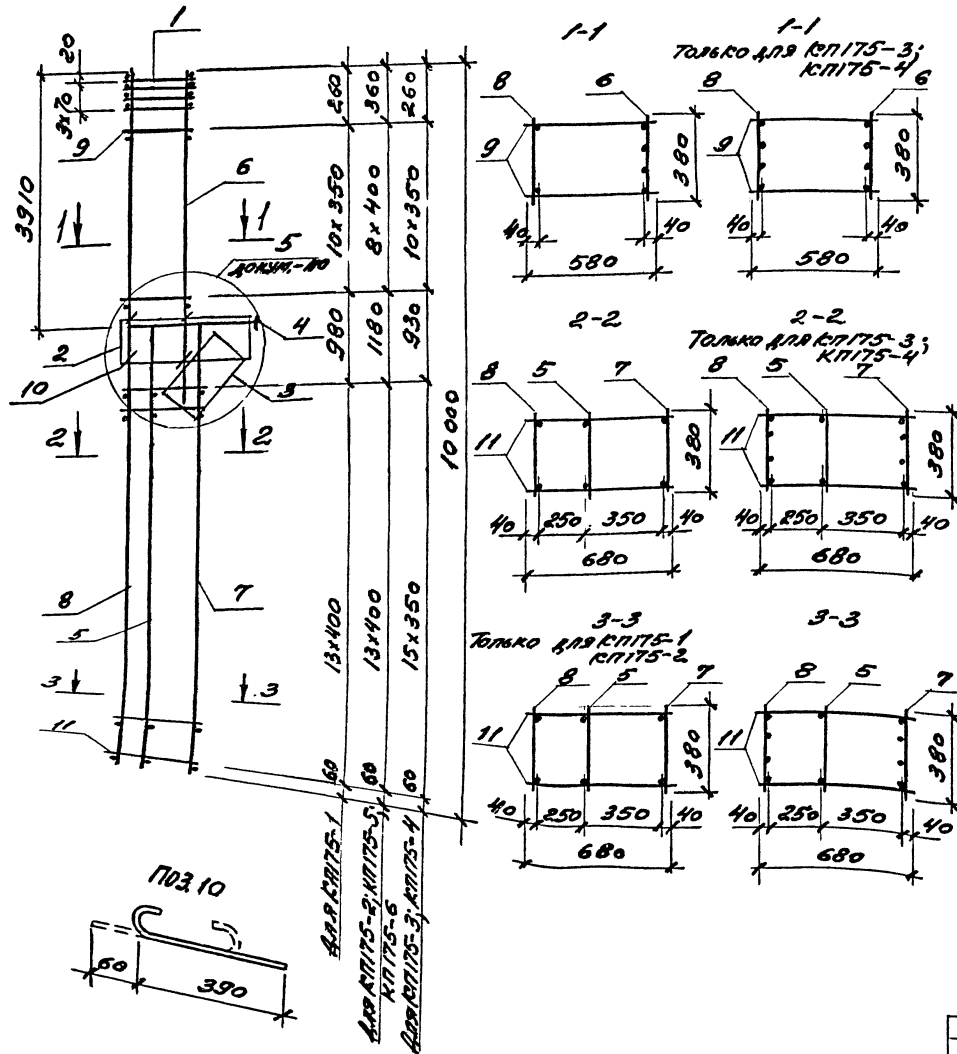 1
20
3x70
9
3910
6
1
1
5
докум.-110
2
10
4
3
2
2
8
5
7
3
3
11
260
10x350
980
13x400
60
для КП175-1
360
8x400
1180
13x400
60
для КП175-2; КП175-5;
КП175-6
260
10x350
930
15x350
60
для КП175-3; КП175-4
10 000
Поз.10
60
390
1-1
8
6
9
380
40
40
580
1-1
Только для КП175-3;
КП175-4
8
6
9
380
40
40
580
2-2
8
5
7
11
380
40
250
350
40
680
2-2
Только для КП175-3;
КП175-4
8
5
7
11
380
40
250
350
40
680
3-3
Только для КП175-1
КП175-2
8
5
7
11
380
40
250
350
40
680
3-3
8
5
7
11
380
40
250
350
40
680